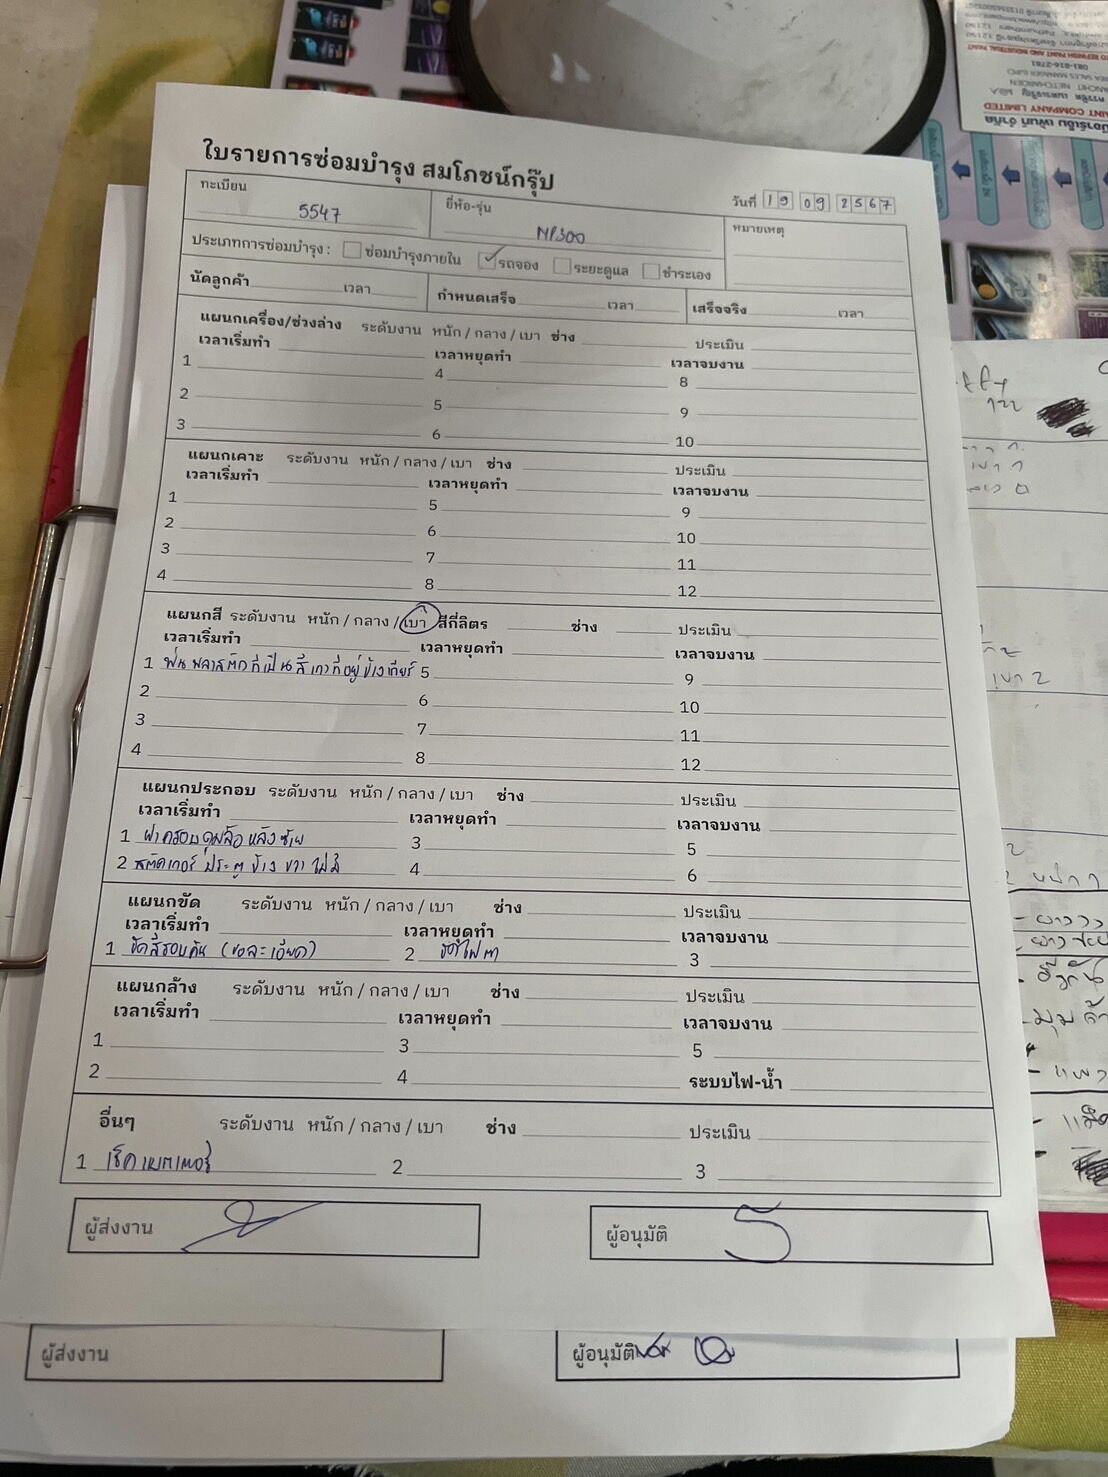 ใบรายการซ่อมบำรุง สมโภชน์กรุ๊ป
วันที่ 19 09 2567
ทะเบียน 5547 ยี่ห้อ-รุ่น MP300 หมายเหตุ
ประเภทการซ่อมบำรุง : ซ่อมบำรุงภายใน รถจอง ระยะดูแล ชำระเอง
นัดลูกค้า เวลา กำหนดเสร็จ เวลา เสร็จจริง เวลา
แผนกเครื่อง/ช่วงล่าง ระดับงาน หนัก / กลาง / เบา ช่าง ประเมิน
เวลาเริ่มทำ เวลาหยุดทำ เวลาจบงาน
1 4 8
2 5 9
3 6 10
แผนกเคาะ ระดับงาน หนัก / กลาง / เบา ช่าง ประเมิน
เวลาเริ่มทำ เวลาหยุดทำ เวลาจบงาน
1 5 9
2 6 10
3 7 11
4 8 12
แผนกสี ระดับงาน หนัก / กลาง / เบา สีกี่ลิตร ช่าง ประเมิน
เวลาเริ่มทำ เวลาหยุดทำ เวลาจบงาน
1 พ่นพลาสติกที่เป็นสีเทาที่อยู่ข้างเกียร์ 5 9
2 6 10
3 7 11
4 8 12
แผนกประกอบ ระดับงาน หนัก / กลาง / เบา ช่าง ประเมิน
เวลาเริ่มทำ เวลาหยุดทำ เวลาจบงาน
1 ฝาครอบดุมล้อหลังซ้าย 3 5
2 สติ๊กเกอร์ประตูข้างขวาไม่มี 4 6
แผนกขัด ระดับงาน หนัก / กลาง / เบา ช่าง ประเมิน
เวลาเริ่มทำ เวลาหยุดทำ เวลาจบงาน
1 ขัดสีรอบคัน (ขอละเอียด) 2 ขัดไฟตา 3
แผนกล้าง ระดับงาน หนัก / กลาง / เบา ช่าง ประเมิน
เวลาเริ่มทำ เวลาหยุดทำ เวลาจบงาน
1 3 5
2 4 ระบบไฟ-น้ำ
อื่นๆ ระดับงาน หนัก / กลาง / เบา ช่าง ประเมิน
1 เช็คแบตเตอรี่ 2 3
ผู้ส่งงาน ผู้อนุมัติ
ผู้ส่งงาน ผู้อนุมัติ
PAINT COMPANY LIMITED
081-816-2781